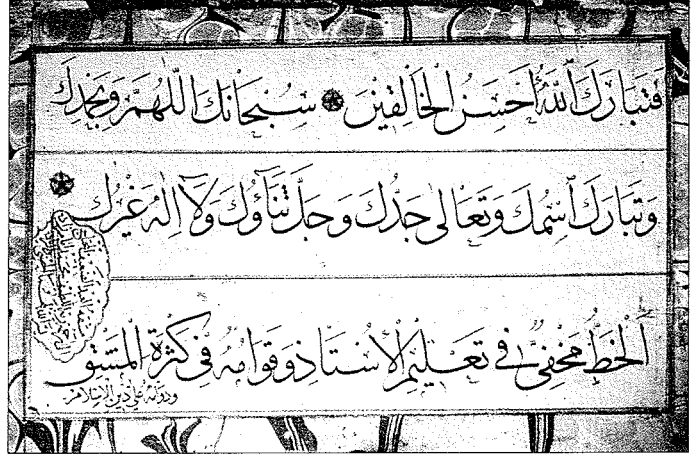 فَتَبَارَكَ ٱللّٰهُ أَحْسَنُ الْخَالِقِينَ سُبْحَانَكَ اللّٰهُمَّ وَبِحَمْدِكَ
وَتَبَارَكَ ٱسْمُكَ وَتَعَالٰى جَدُّكَ وَجَلَّ ثَنَاؤُكَ وَلَآ اِلٰهَ غَيْرُكَ
اَلْخَطُّ مَخْفِيٌّ فِي تَعْلِيْمِ الْاُسْتَاذِ وَقِوَامُهُ فِي كَثْرَةِ الْمَشْقِ
ودوامه على دين الاسلام